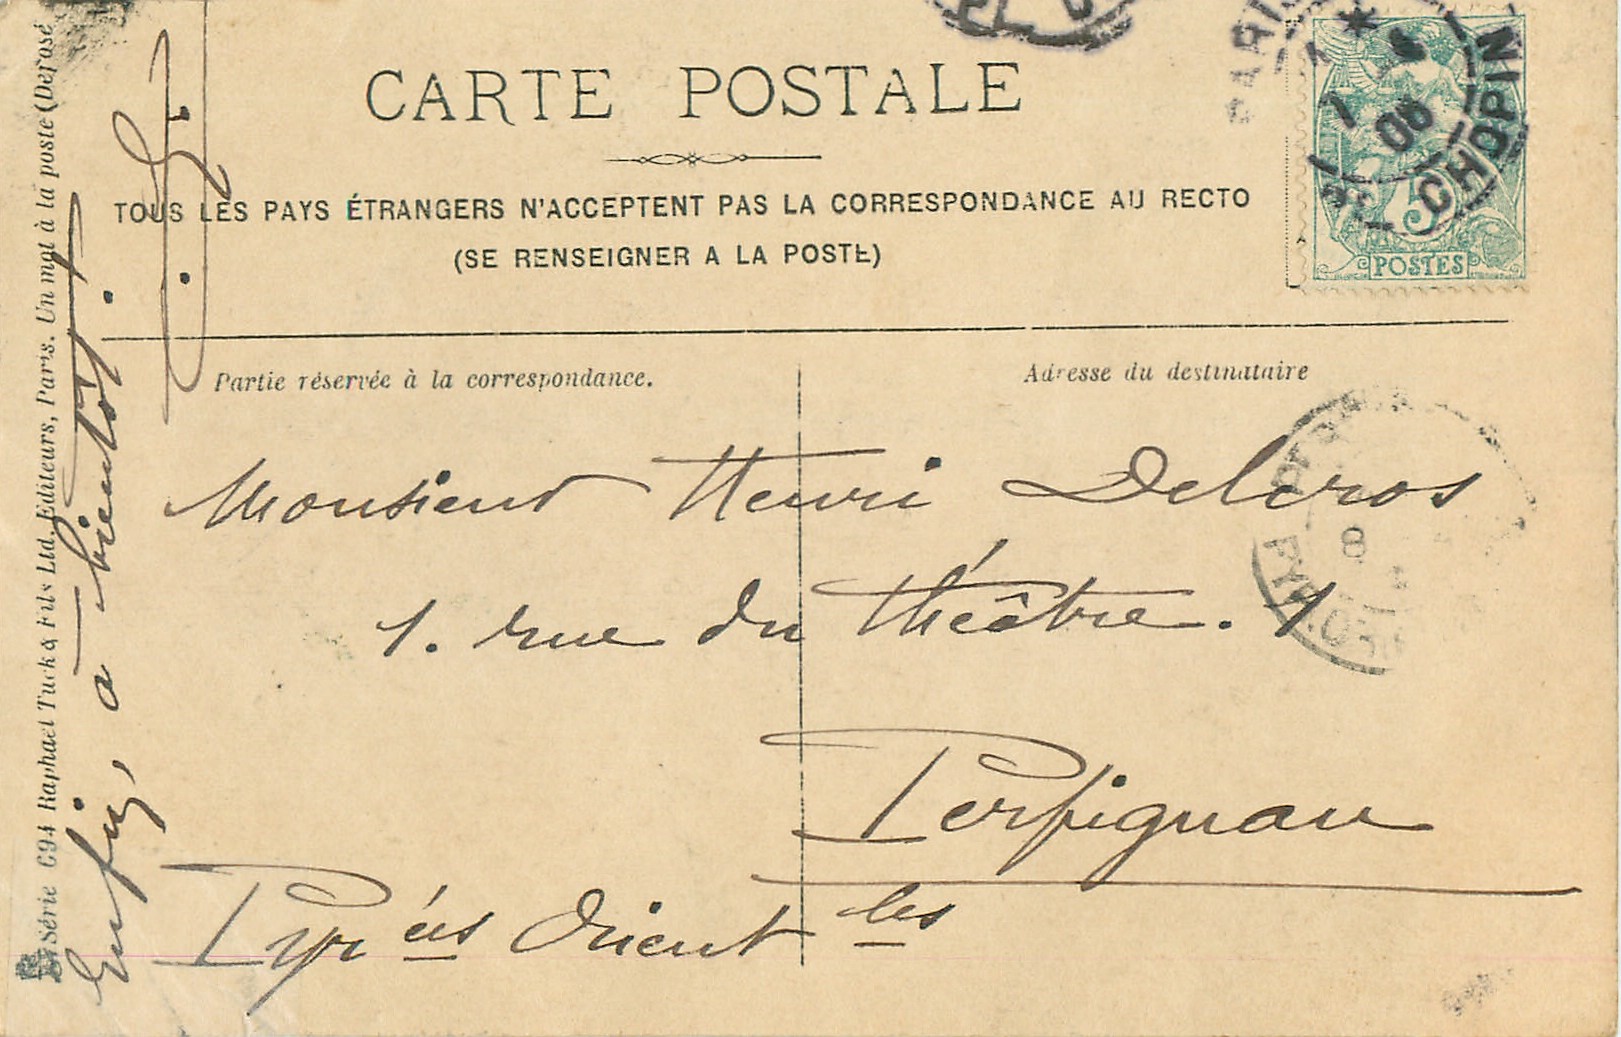 CARTE POSTALE
TOUS LES PAYS ÉTRANGERS N'ACCEPTENT PAS LA CORRESPONDANCE AU RECTO
(SE RENSEIGNER A LA POSTE)
PARIS
CHOPIN
7
06
5
POSTES
Partie réservée à la correspondance.
Adresse du destinataire
Monsieur Henri Delcros
1. rue du théâtre. 1
Perpignan
Pyrées Orientles
8
Enfin, à bientôt!
Série 694 Raphael Tuck & Fils Ltd. Editeurs, Paris. Un mot à la poste (Derosé